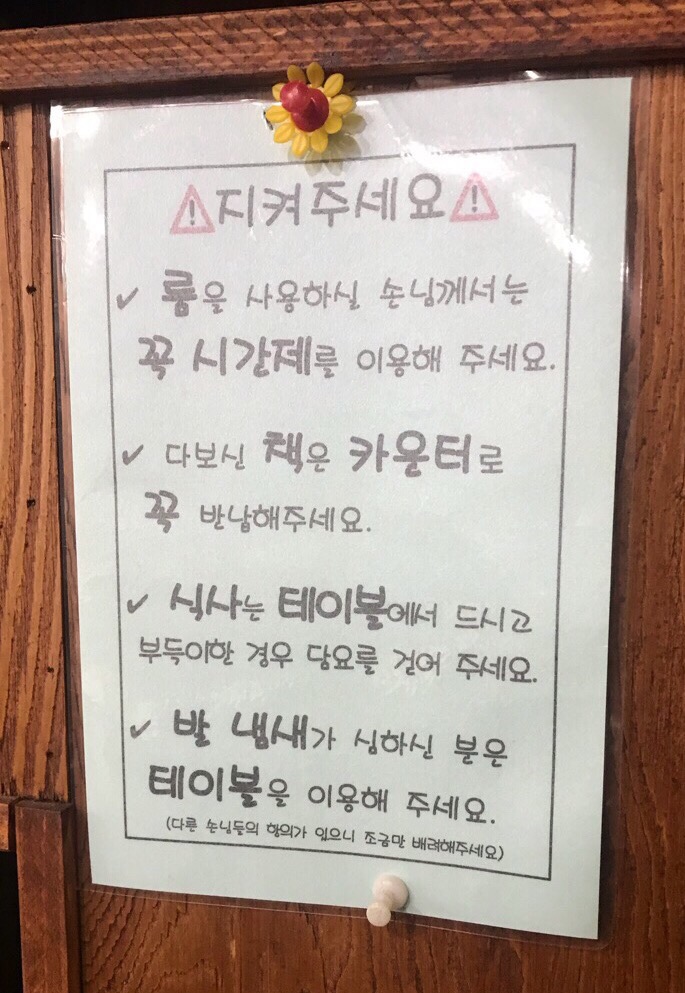 ⚠지켜주세요⚠
✓ 룸을 사용하실 손님께서는
꼭 시간제를 이용해 주세요.
✓ 다보신 책은 카운터로
꼭 반납해주세요.
✓ 식사는 테이블에서 드시고
부득이한 경우 담요를 걷어 주세요.
✓ 발 냄새가 심하신 분은
테이블을 이용해 주세요.
(다른 손님들의 항의가 있으니 조금만 배려해주세요)